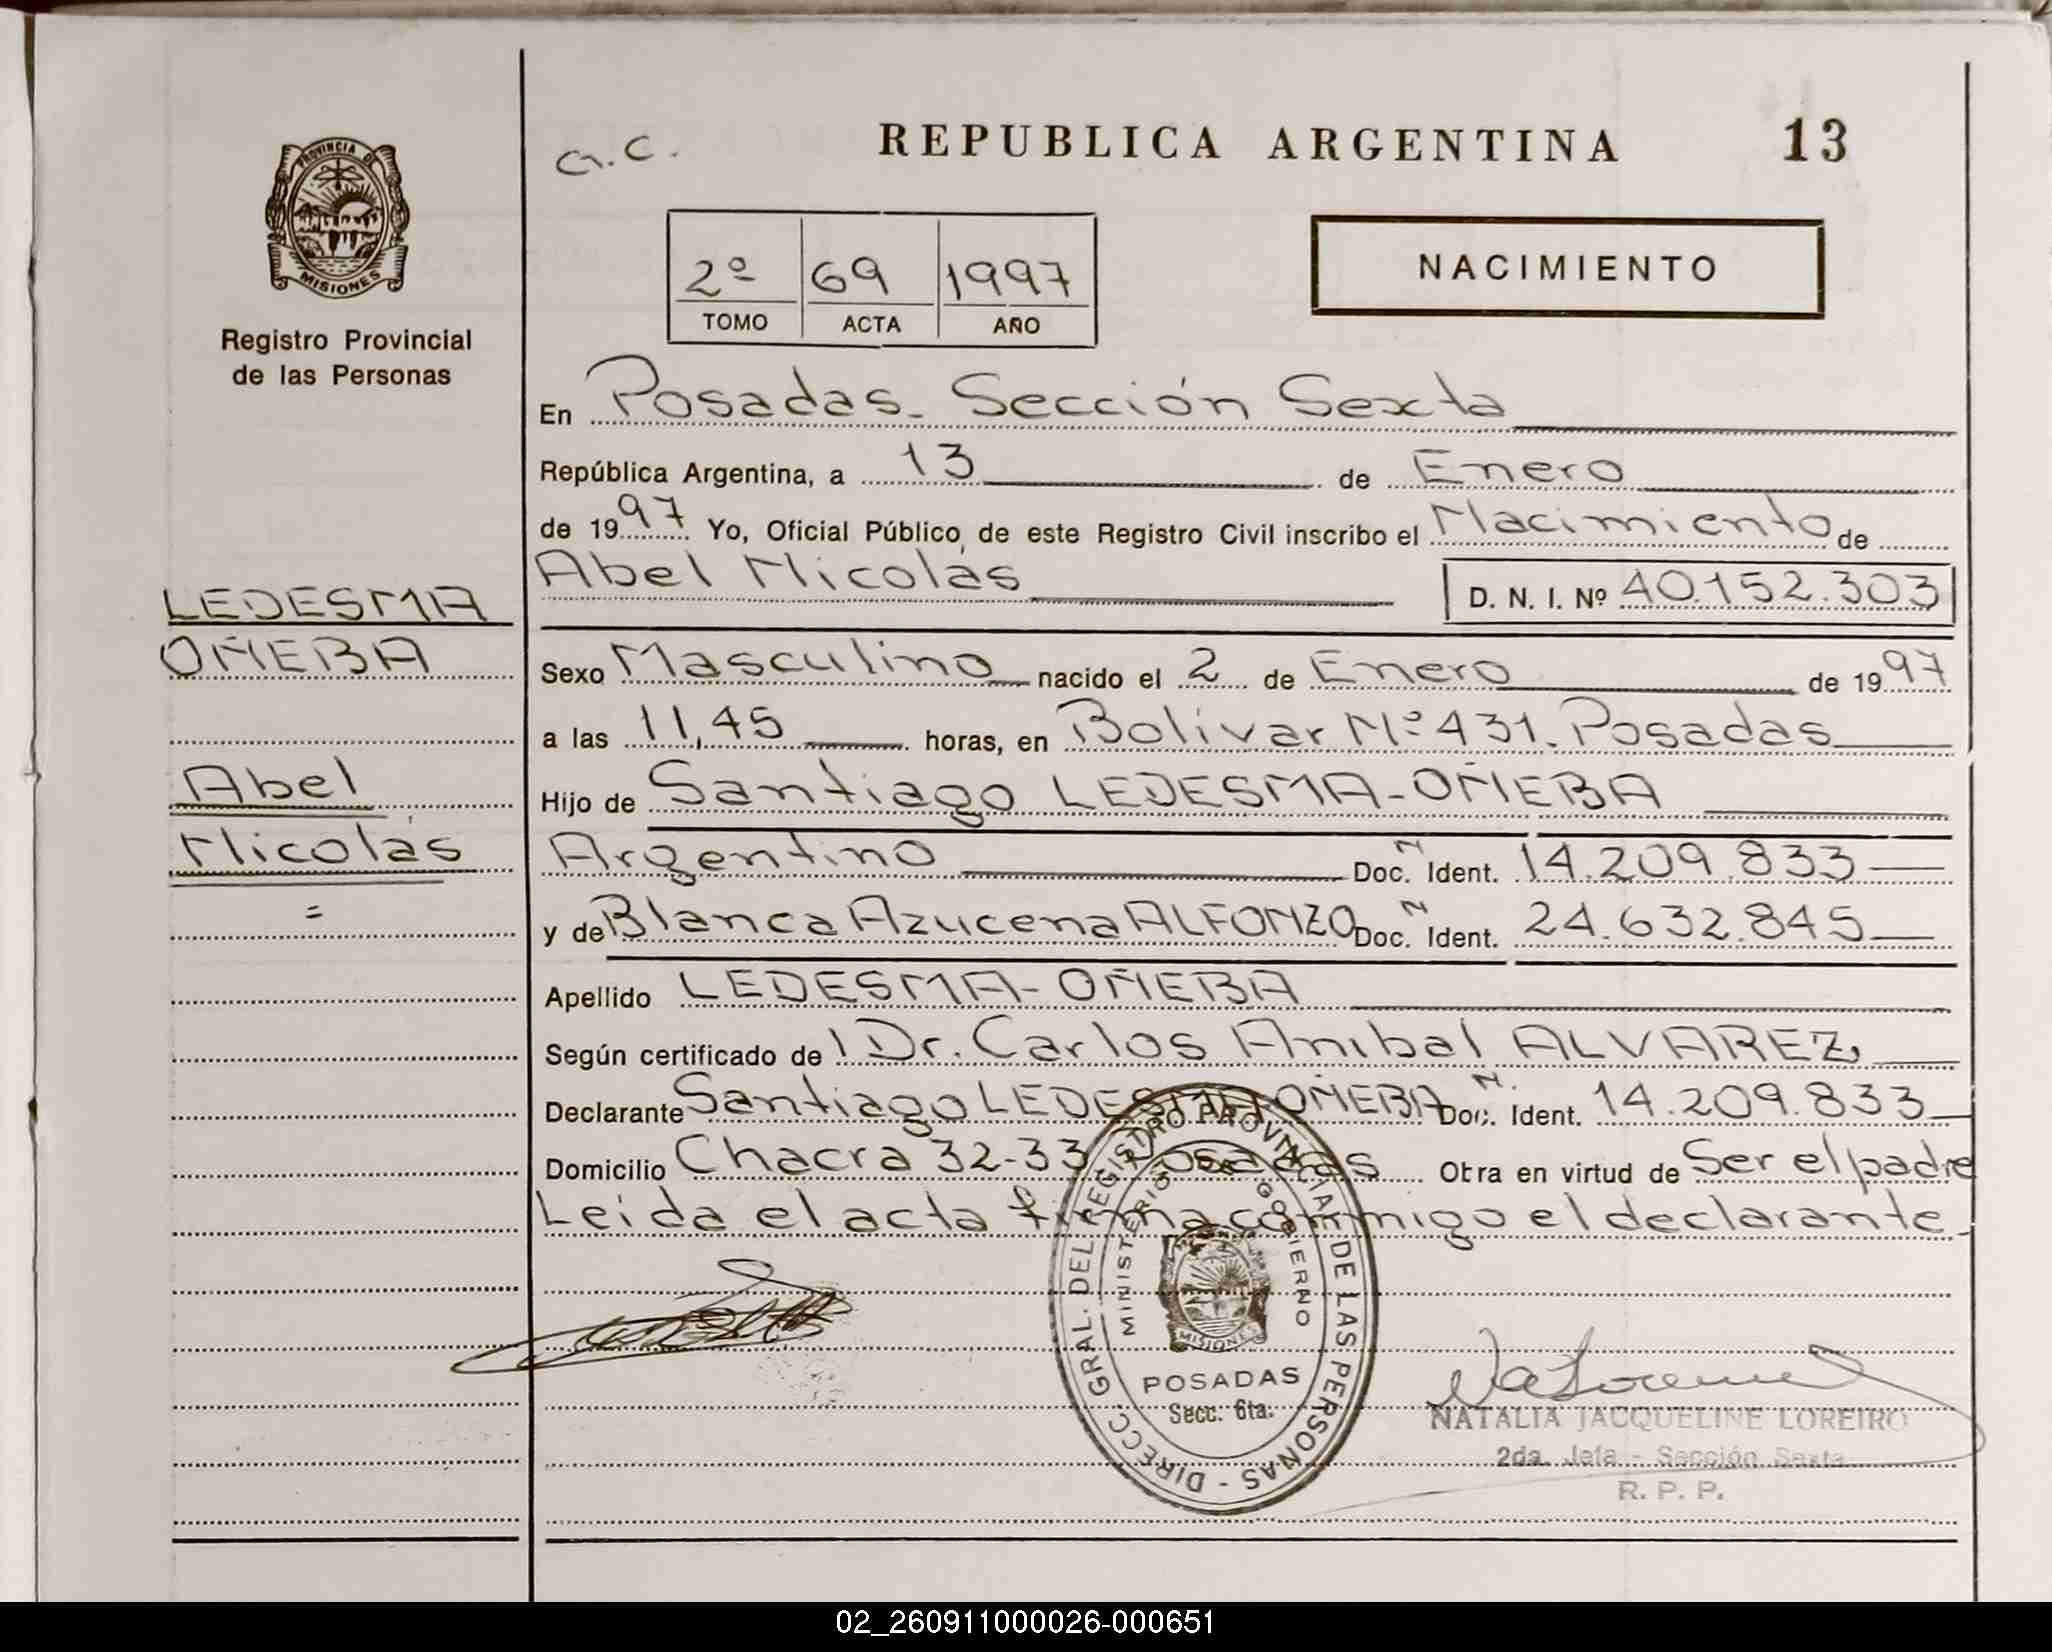 G.C.
REPUBLICA ARGENTINA 13
PROVINCIA DE MISIONES
Registro Provincial
de las Personas
2º 69 1997
TOMO ACTA AÑO
NACIMIENTO
En Posadas. Sección Sexta
República Argentina, a 13 de Enero
de 1997 Yo, Oficial Público de este Registro Civil inscribo el Nacimiento de
Abel Nicolás D. N. I. Nº 40.152.303
LEDESMA
OÑEBA
Abel
Nicolás
=
Sexo Masculino nacido el 2 de Enero de 1997
a las 11,45 horas, en Bolívar Nº 431. Posadas
Hijo de Santiago LEDESMA-OÑEBA
Argentino Doc. N Ident. 14.209.833
y de Blanca Azucena ALFONZO Doc. N Ident. 24.632.845
Apellido LEDESMA-OÑEBA
Según certificado de l Dr. Carlos Anibal ALVAREZ,
Declarante Santiago LEDESMA OÑEBA Doc. N. Ident. 14.209.833
Domicilio Chacra 32-33 Posadas Otra en virtud de Ser el padre
Leída el acta firma conmigo el declarante.
DIRECC. GRAL. DEL REGISTRO PROVINCIAL DE LAS PERSONAS -
MINISTERIO DE GOBIERNO
MISIONES
POSADAS
Secc. 6ta.
NATALIA JACQUELINE LOREIRO
2da. Jefa - Sección Sexta
R. P. P.
02_260911000026-000651